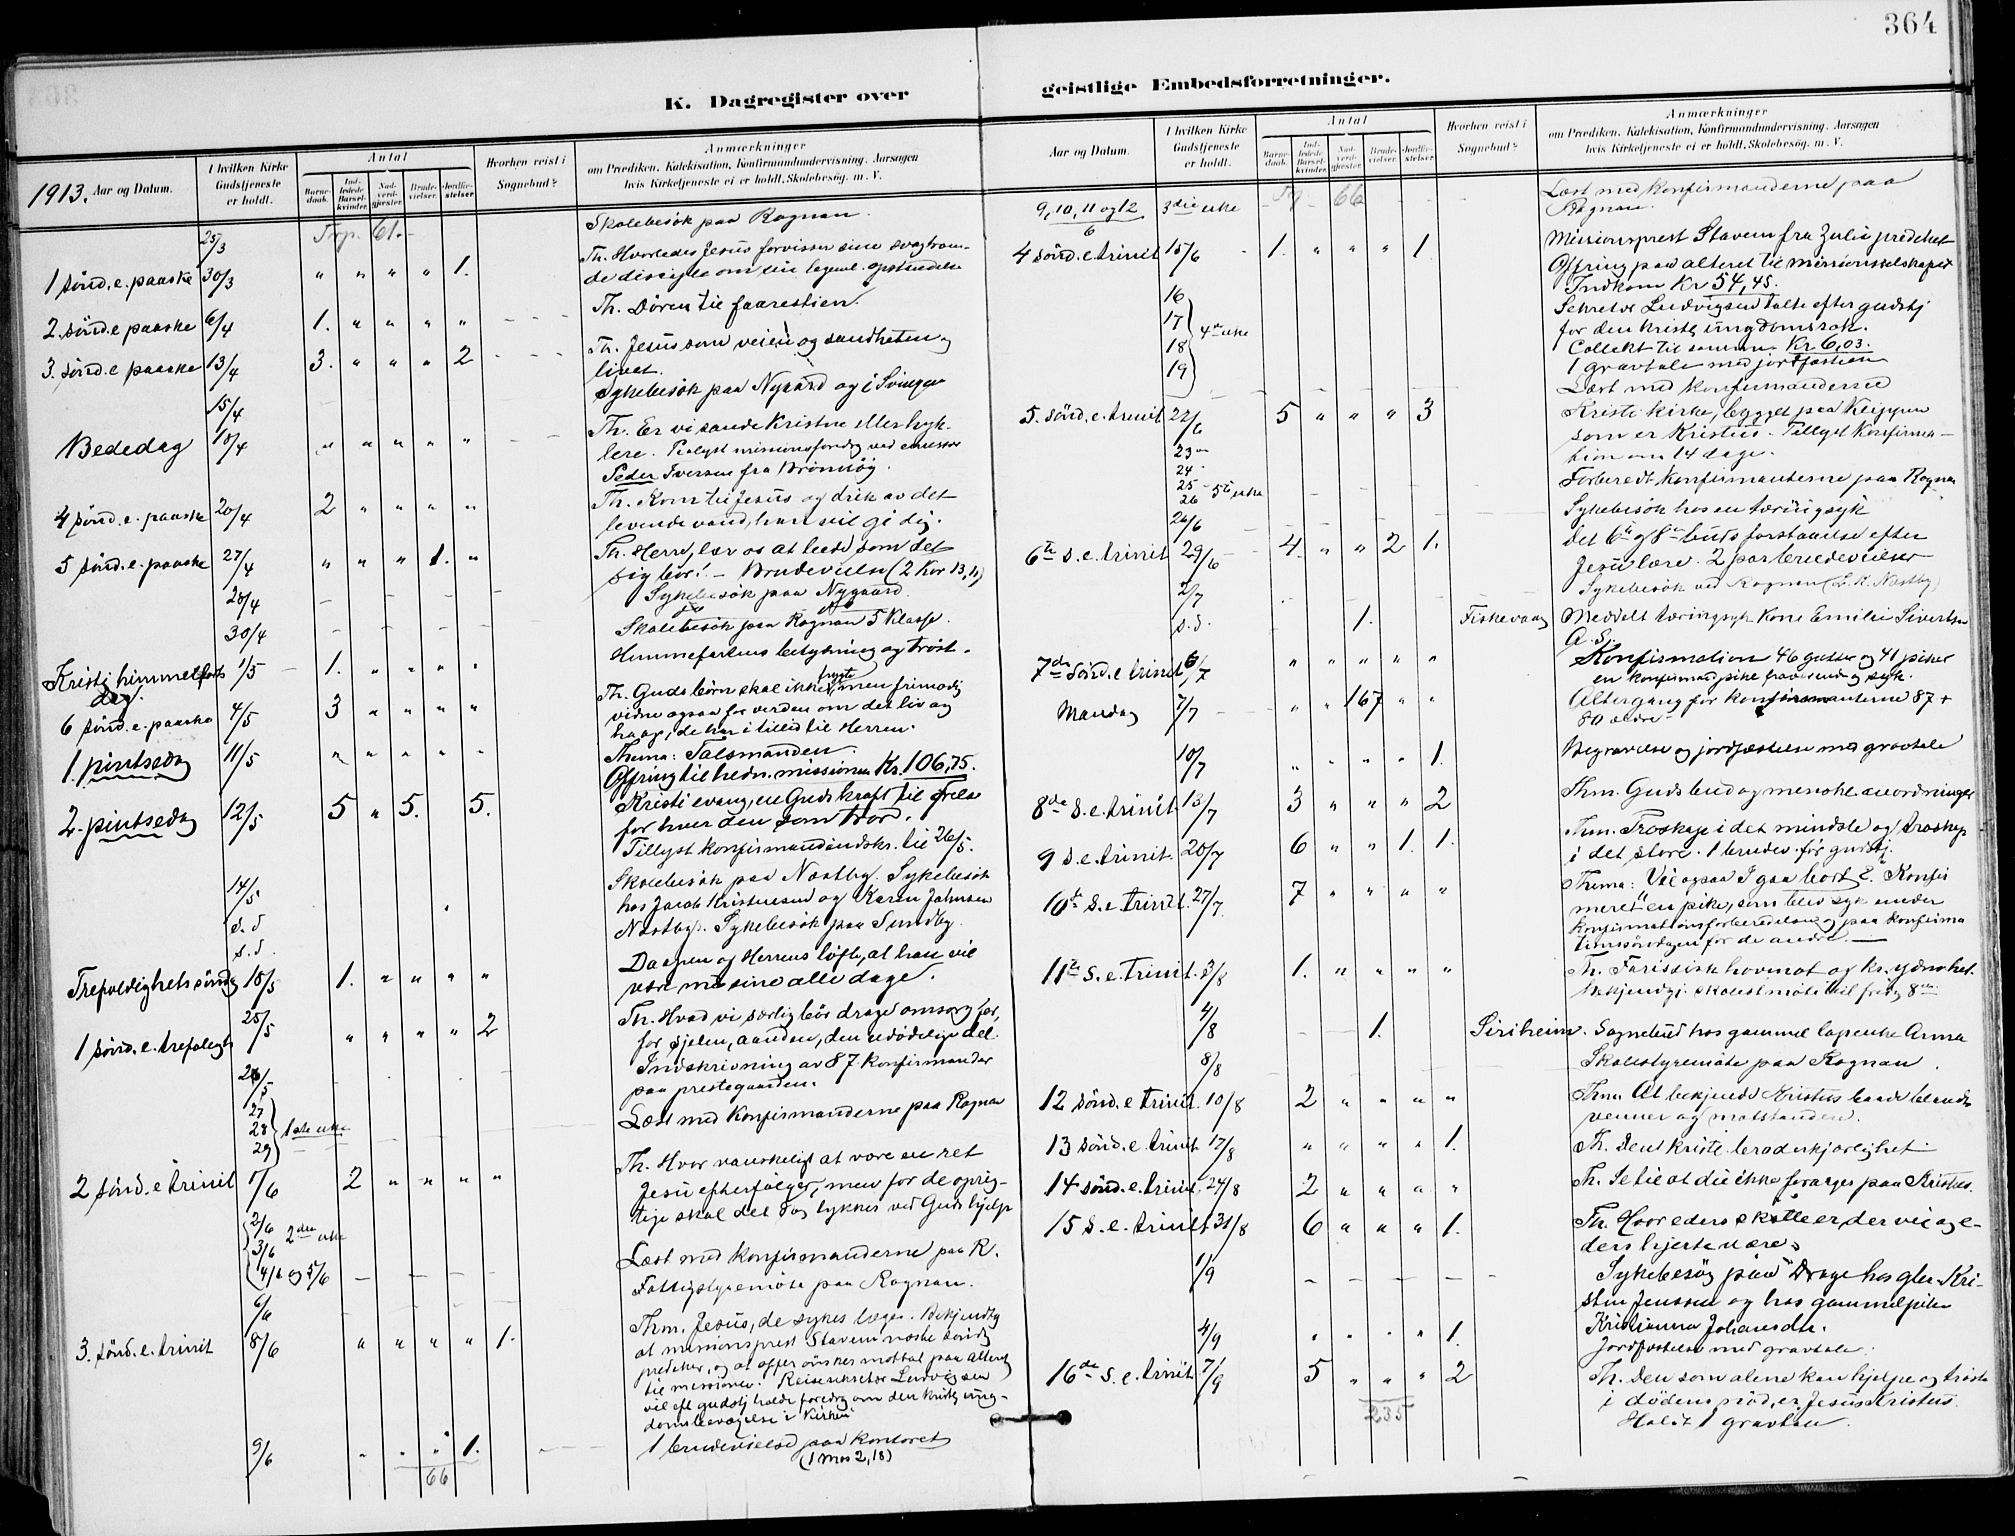 364
K. Dagregister over
geistlige Embedsforretninger.
1913. Aar og Datum.
I hvilken Kirke Gudstjeneste er holdt.
Antal
Barnedaab.
Indledede Barselkvinder.
Nadverdgjæster.
Brudevielser.
Jordfæstelser.
Hvorhen reist i Sognebud?
Anmærkninger
om Prædiken, Katekisation, Konfirmandundervisning, Aarsagen
hvis Kirketjeneste ei er holdt, Skolebesøg. m. V.
25/3 Trp. 61. Skolebesök paa Rognan.
1 sönd. e. paaske 30/3 " " " " 1. Th. Hvorledes Jesus forvisser sine svagtroen-
de disciple om sin legeml. opstandelse
2. sönd. e paaske 6/4 1. " " " " Th. Dören til faarestien.
3. sönd. e paaske 13/4 3. " " " 2 Th. Jesus som veien og sandheten og
livet.
15/4 Sykebesök paa Nygaard og i Svingen
Bededag 18/4 " " " " " Th. Er vi sande Kristne eller hyk-
lere. missionsforedrag ved
Peder Iversen fra Brönnöy.
4 sönd. e. paaske 20/4 2 " " " " Th. Kom til Jesus og drik av det
levende vand, han vil gi dig.
5 sönd. e. paaske 27/4 " " " 1. " Th. Herre, lær os at bede, som det
sig bör! – Brudevielse (2 Kor 13,11)
28/4 Sykebesök paa Nygaard.
30/4 Skolebesök paa Rognan 5 Klasse.
Kristi himmelfarts dag. 1/5 1. " " " " Himmelfartens betydning og tröst.
6 sönd. e. paaske 4/5 3 " " " " Th. Guds börn skal ikke men frimodig
vidne ogsaa for verden om det liv og
haap, de har i tillid til Herren.
1. pintsedag 11/5 " " " " " Thema: Talsmanden.
Offring til hedn. missionen Kr. 106,75.
2. pintsedag 12/5 5 " 5. 5. Kristi evang. en Guds kraft til frelse
for hver den som tror.
Tillyst konfirmandindskr. til 26/5.
14/5 Skolebesök paa Næstby. Sykebesök
s. d hos Jacob Kristensen og Karen Johnsen
s. d. Næstby. Sykebesök paa Sundby.
Trefoldighets sönd. 18/5 1. " " " " Daapen og Herrens löfte, at han vil
være med sine alle dage.
1 sönd. e. trefoldigh 25/5 " " " " 2 Th. Hvad vi særlig bör drage omsorg for,
for sjelen, aanden, den udödelige del.
26/5 Indskrivning av 87 konfirmander
paa prestegaarden.
27 28 29 1ste uke Læst med Konfirmanderne paa Rognan
2 sönd. e trinit 1/6 2 " " " " Th. Hvor vanskeligt at være en ret
Jesu efterfölger, men for de oprig-
tige skal det dog lykkes ved Guds hjelp
2/6 3/6 4/6 og 5/6 2den uke Læst med konfirmanderne paa R.
6/6 Fattigstyremöte paa Rognan.
3. sönd. e. trinit 8/6 " " " " 1. Thm. Jesus, de sykes læge. Bekjendtg
at missionsprest Stavem næste söndg
prediker, og at offer önskes mottat paa alteret
til missionen. Reisesekretær Ludvigsen
vil eft gudstj holde foredrag om den kristelig ung-
domsbevægelse i Kirken
9/6 1. 1 brudevielse paa kontoret
(1 Mos 2,18)
66
Aar og Datum.
I hvilken Kirke Gudstjeneste er holdt.
Antal
Barnedaab.
Indledede Barselkvinder.
Nadverdgjæster.
Brudevielser.
Jordfæstelser.
Hvorhen reist i Sognebud?
Anmærkninger
om Prædiken, Katekisation, Konfirmandundervisning, Aarsagen
hvis Kirketjeneste ei er holdt, Skolebesøg. m. V.
9, 10, 11 og 12/6 3die uke 66 Læst med Konfirmanderne paa
Rognan.
4 sönd. e. trinit 15/6 1. " " " 1. Missionsprest Stavem fra Zulu prediket
Offring paa alteret til missionsselskapet
Indkom Kr 54,45.
Sekretær Ludvigsen talte efter gudstj
for den kristelig ungdomssak.
Collekt til samme Kr 6,03.
1 gravtale med jordfæstelsen
16 17 18 19 4de uke Læst med konfirmanderne
5 sönd. e. trinit 22/6 5 " " " 3 Kristi kirke, bygget paa Klippen
som er Kristus. Tillyst Konfirma-
tion om 14 dage.
23 24 25 26 5te uke Forberedt Konfirmanterne paa Rognan
26/6 Sykebesök hos en tæringssyk
6te s. e. trinit 29/6 4. " " 2 1. det 6te og 8de buds forstaaelse efter
Jesu lære. 2 par brudevielser
2/7 Sykebesök ved Rognan (L. K. Næstby)
s. d. 1. Fiskevaag Meddelt tæringssyk Kone Emilie Sivertsen
A. S.
7de sönd. e. trinit 6/7 " " " " " Konfirmation 46 gutter og 41 piker
en konfirmand pike fraværende syk.
Mandag 7/7 " " 167 " " Altergang for konfirmanterne 87 +
80 andre
10/7 " " " " 1. Begravelse og jordfæstelse med gravtale
8de s. e. trinit. 13/7 3 " " " 2 Thm. Guds bud og menskel. anordninger
9 s. e. trinit. 20/7 6 " " 1. 1. Thm. Troskap i det mindste og troskap
i det store. 1 brudev. för gudstj.
10de s. e. trinit. 27/7 7 " " " " Thema: Vil ogsaa I gaa bort? Konfir
meret en pike, som blev syk under
konfirmationsforberedelsen og paa konfirma
tionssöndagen for de andre.
11te s. e. trinit. 3/8 1. " " " " Th. Fariseisk hovmot og kr. ydmyhet.
Bekjendtgj. skolestmöte til fredg 8de
4/8 1. Siriheim. Sognebud hos gammel lapenke Anna
8/8 Skolestyremöte paa Rognan.
12 sönd. e trinit. 10/8 2 " " " " Thm. At bekjende Kristus baade blandt
venner og motstandere.
13 sönd. e. trinit. 17/8 " " " " 1. Th. Den kristl. broderkjærlighet
14 sönd. e. trinit. 24/8 2 " " " " Th. Se til at du ikke forarges paa Kristus.
15 s. e. trinit. 31/8 6 " " " 1. Th. Hvor eders skat er, der vil og e-
ders hjerte være.
1/9 Sykebesög paa Drage hos glm. Kri-
stin Jenssen og hos gammel piken
Kristianna Johansdtr.
4/9 " " " " 1. Jordfæstelse med gravtale.
16de s. e. trinit. 7/9 5 " " " 2 Th. Den som alene kan hjelpe og tröste
i dödens nöd, er Jesus Kristus.
Holdt 1 gravtale.
235